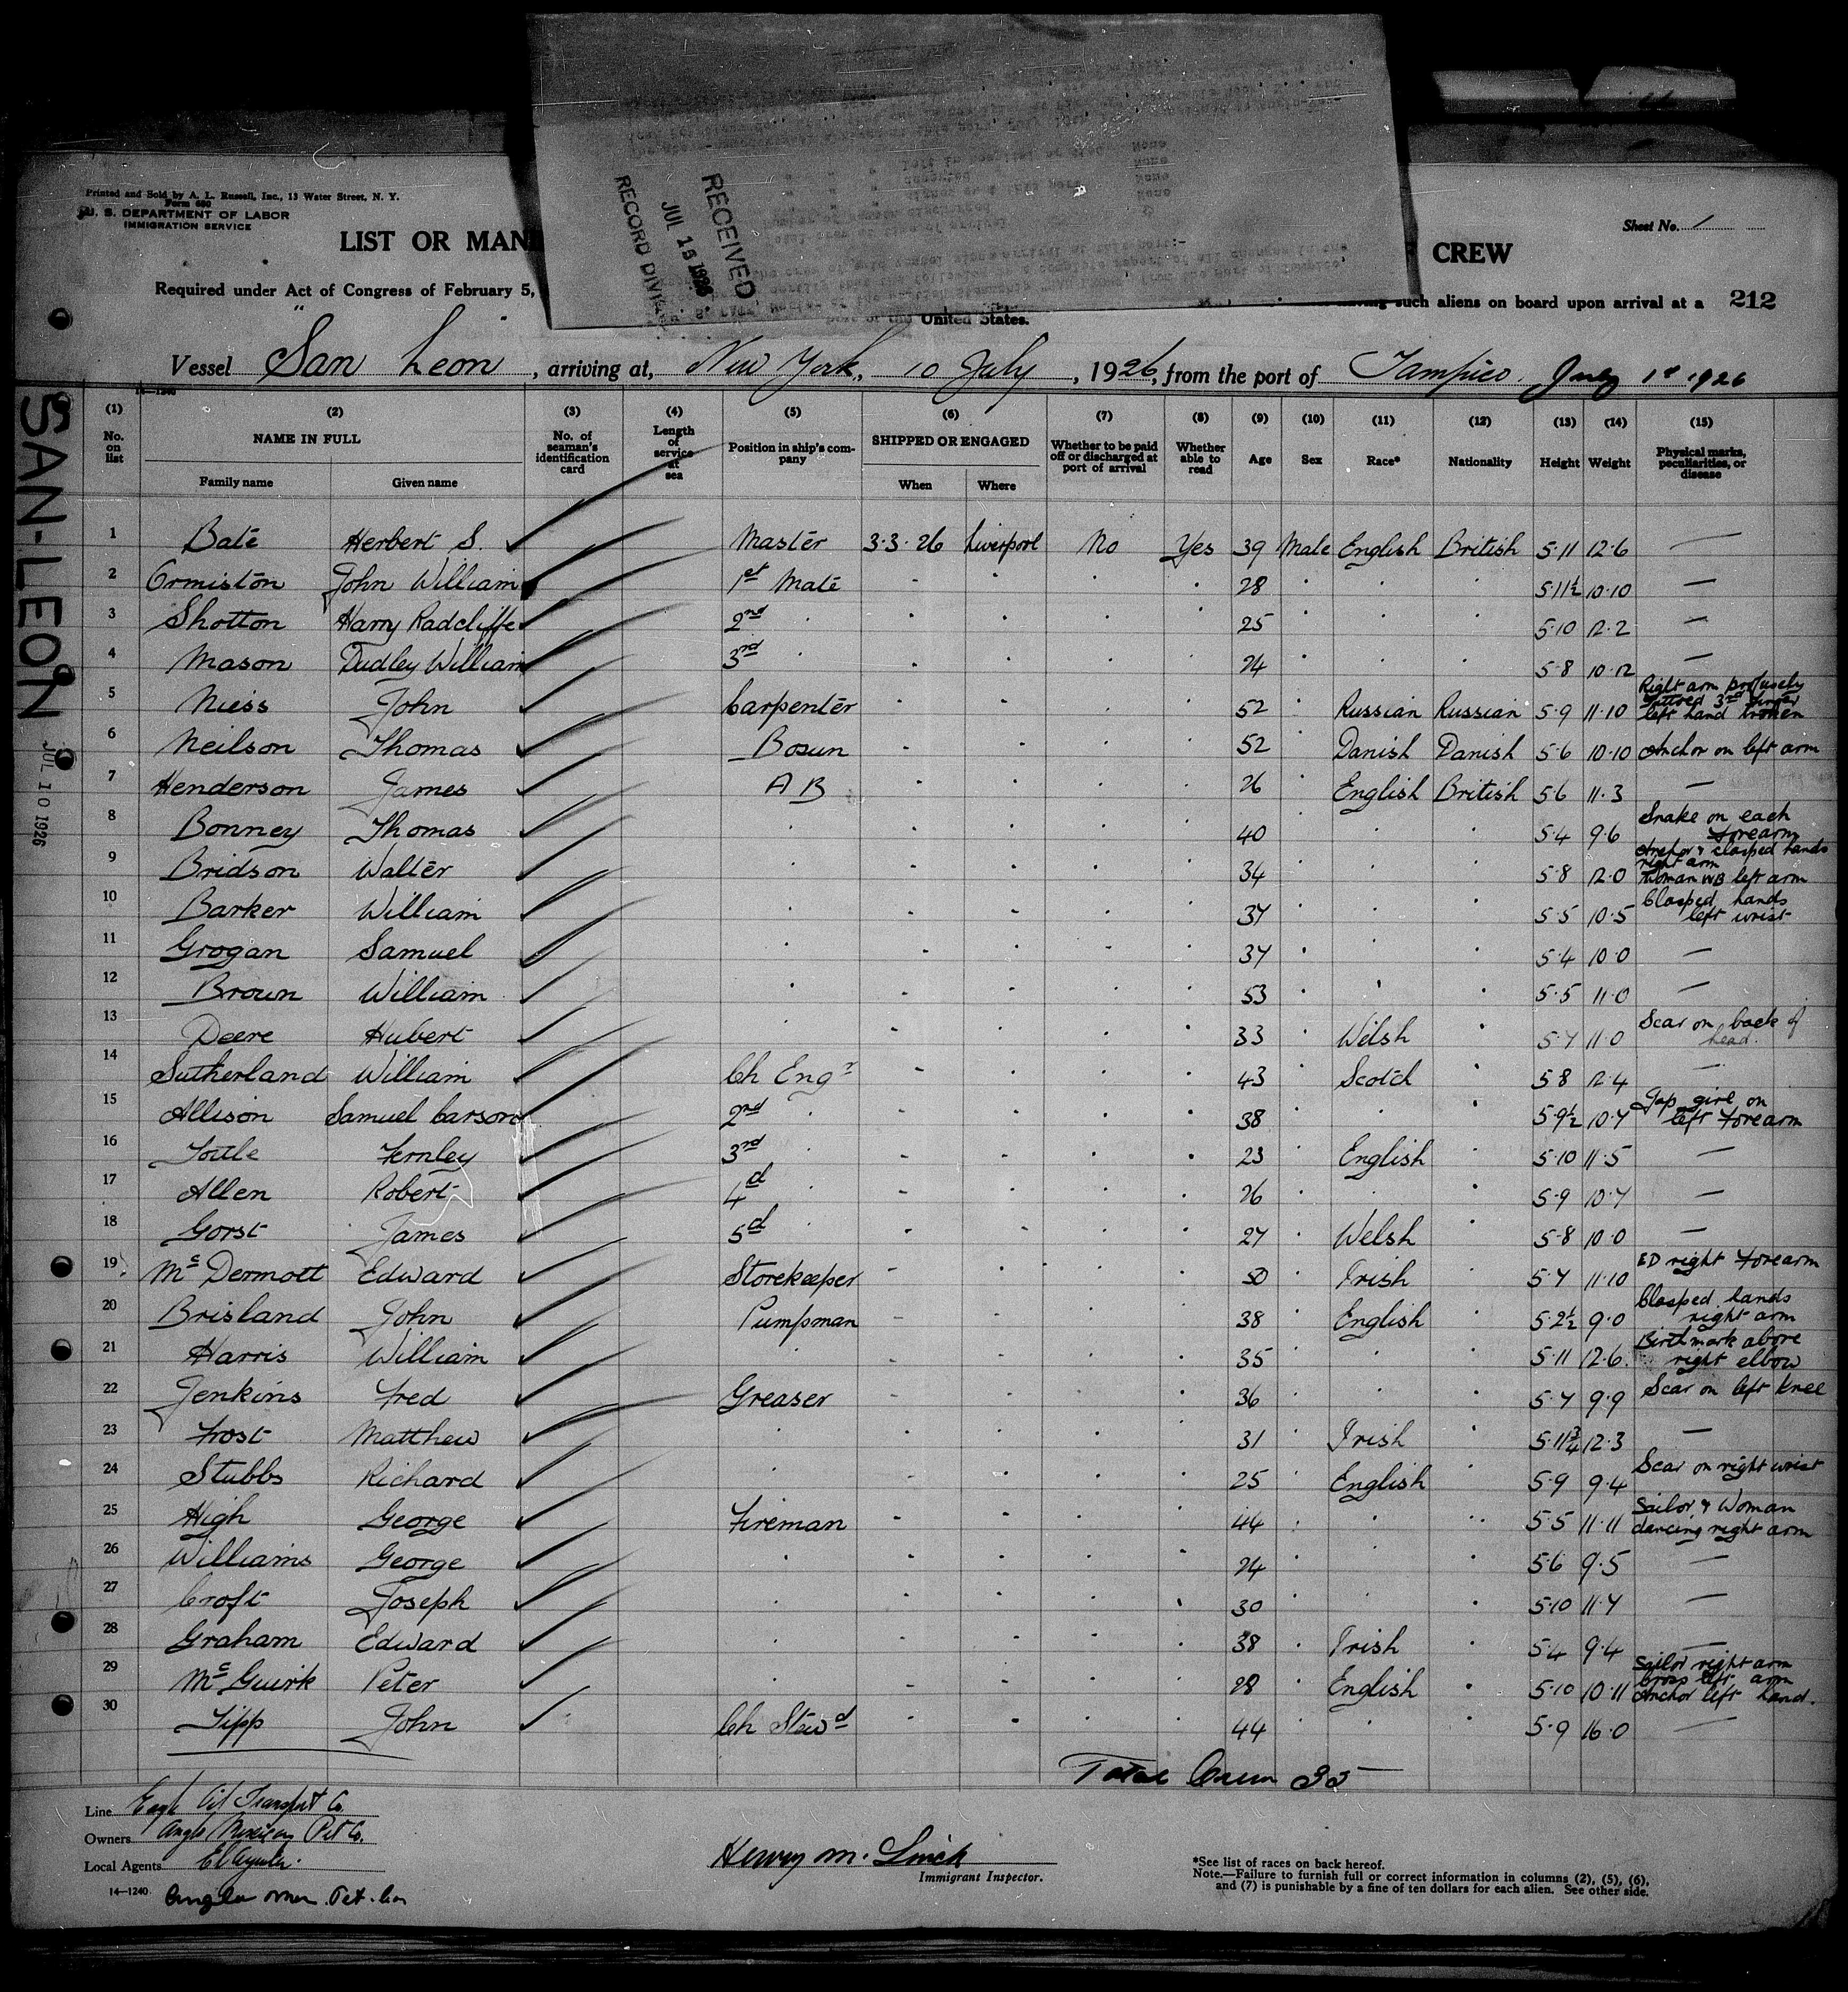 RECEIVED
JUL 15 1926
RECORD DIVI
None
None
None
Printed and Sold by A. L. Russell, Inc., 13 Water Street, N. Y.
Form 680
U. S. DEPARTMENT OF LABOR
IMMIGRATION SERVICE
Sheet No. 1
LIST OR MAN CREW
Required under Act of Congress of February 5, such aliens on board upon arrival at a 212
port of the United States.
Vessel "San Leon, arriving at, New York, 10 July, 1926, from the port of Tampico. July 1st 1926
SAN-LEON
JUL 10 1926
14—1240
(1) (2) (3) (4) (5) (6) (7) (8) (9) (10) (11) (12) (13) (14) (15)
No. on list NAME IN FULL No. of seaman's identification card Length of service at sea Position in ship's company SHIPPED OR ENGAGED Whether to be paid off or discharged at port of arrival Whether able to read Age Sex Race* Nationality Height Weight Physical marks, peculiarities, or disease
Family name Given name When Where
1 Bate Herbert S. Master 3.3.26 Liverpool No Yes 39 Male English British 5.11 12.6 —
2 Ormiston John William 1st Mate 28 5.11½ 10.10 —
3 Shotton Harry Radcliffe 2nd 25 5.10 12.2 —
4 Mason Dudley William 3rd 24 5.8 10.12 —
5 Niess John Carpenter 52 Russian Russian 5.9 11.10 Right arm profusely tattoed 3rd finger left hand broken
6 Neilson Thomas Bosun 52 Danish Danish 5.6 10.10 Anchor on left arm
7 Henderson James A B 26 English British 5.6 11.3 —
8 Bonney Thomas 40 5.4 9.6 Snake on each forearm
9 Bridson Walter 34 5.8 12.0 Anchor & clasped hands right arm Woman WB left arm
10 Barker William 37 5.5 10.5 Clasped hands left wrist
11 Grogan Samuel 37 5.4 10.0 —
12 Brown William 53 5.5 11.0 —
13 Deere Hubert 33 Welsh 5.7 11.0 Scar on back of head.
14 Sutherland William Ch Engr 43 Scotch 5.8 12.4 —
15 Allison Samuel Carson 2nd 38 5.9½ 10.7 Jap girl on left forearm
16 Toule Fernley 3rd 23 English 5.10 11.5 —
17 Allen Robert 4d 26 5.9 10.7 —
18 Gorst James 5d 27 Welsh 5.8 10.0 —
19 McDermott Edward Storekeeper 50 Irish 5.7 11.10 ED right forearm
20 Brisland John Pumpman 38 English 5.2½ 9.0 Clasped hands right arm
21 Harris William 35 5.11 12.6 Birthmark above right elbow
22 Jenkins Fred Greaser 36 5.7 9.9 Scar on left knee
23 Frost Matthew 31 Irish 5.11¾ 12.3 —
24 Stubbs Richard 25 English 5.9 9.4 Scar on right wrist
25 High George Fireman 44 5.5 11.11 Sailor & Woman dancing right arm
26 Williams George 24 5.6 9.5 —
27 Croft Joseph 30 5.10 11.7 —
28 Graham Edward 38 Irish 5.4 9.4 —
29 McGuirk Peter 28 English 5.10 10.11 Sailor right arm Cross left arm Anchor left hand.
30 Tipp John Ch Stewd 44 5.9 16.0 —
Total Crew 35
Line Eagle Oil Transport Co.
Owners Anglo Mexican Pet Co.
Local Agents
14—1240 Anglo Mex. Pet.
Henry M.
Immigrant Inspector.
*See list of races on back hereof.
Note.—Failure to furnish full or correct information in columns (2), (5), (6),
and (7) is punishable by a fine of ten dollars for each alien. See other side.